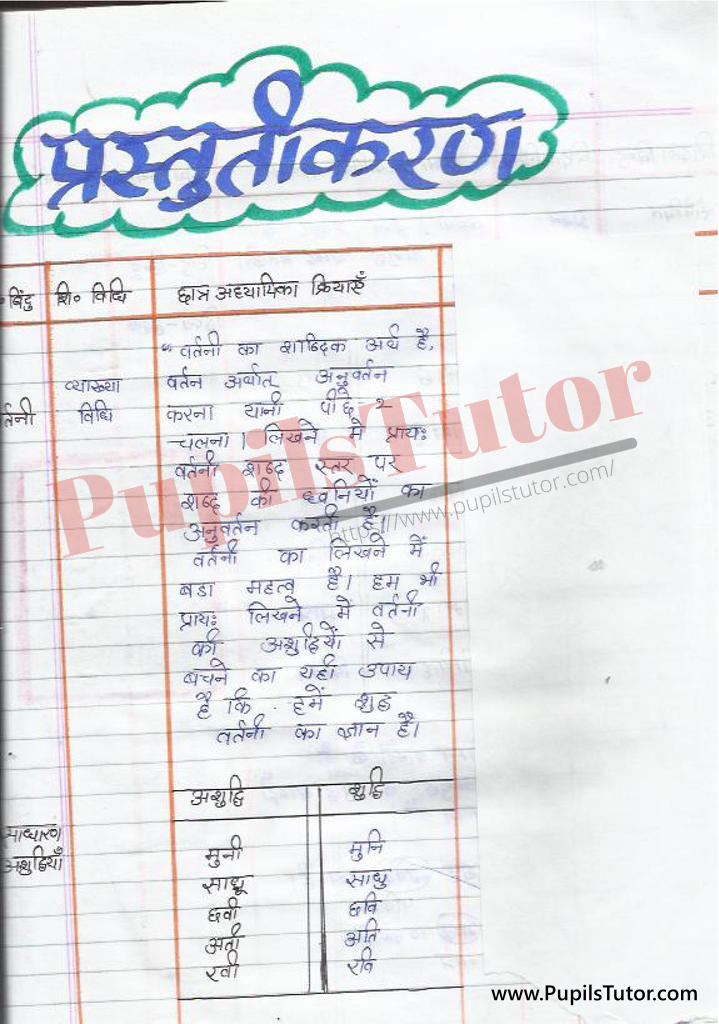 प्रस्तुतीकरण
बिंदु शि० विधि छात्र अध्यापिका क्रियाएँ
"वर्तनी का शाब्दिक अर्थ है,
व्याख्या वर्तन अर्थात् अनुवर्तन
र्तनी विधि करना यानी पीछे-२
चलना। लिखने में प्रायः
वर्तनी शब्द स्तर पर
शब्द की ध्वनियों का
अनुवर्तन करती है॥
वर्तनी का लिखने में
बडा महत्व है। हम भी
प्रायः लिखने में वर्तनी
की अशुद्धियों से
बचने का यही उपाय
है कि हमें शुद्ध
वर्तनी का ज्ञान है।
अशुद्धि शुद्धि
साधारण
अशुद्धियाँ
मुनी मुनि
साधू साधु
छवी छवि
अती अति
रवी रवि
PupilsTutor
http://www.pupilstutor.com/
www.PupilsTutor.com